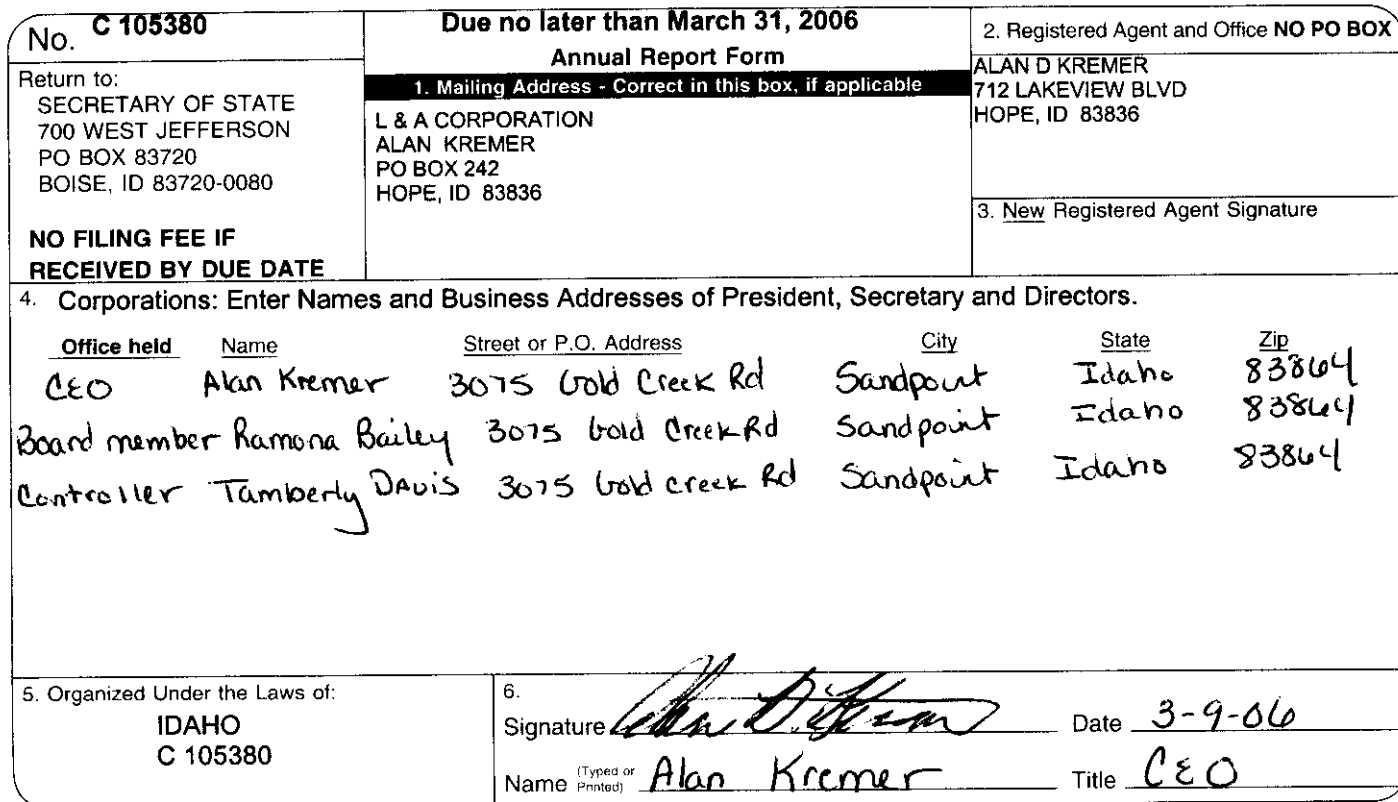 No. C 105380
Return to:
SECRETARY OF STATE
700 WEST JEFFERSON
PO BOX 83720
BOISE, ID 83720-0080
NO FILING FEE IF
RECEIVED BY DUE DATE
Due no later than March 31, 2006
Annual Report Form
1. Mailing Address - Correct in this box, if applicable
L & A CORPORATION
ALAN KREMER
PO BOX 242
HOPE, ID 83836
2. Registered Agent and Office NO PO BOX
ALAN D KREMER
712 LAKEVIEW BLVD
HOPE, ID 83836
3. New Registered Agent Signature
4. Corporations: Enter Names and Business Addresses of President, Secretary and Directors.
Office held Name Street or P.O. Address City State Zip
CEO Alan Kremer 3075 Gold Creek Rd Sandpoint Idaho 83864
Board member Ramona Bailey 3075 Gold Creek Rd Sandpoint Idaho 83864
Controller Tamberly Davis 3075 Gold creek Rd Sandpoint Idaho 83864
5. Organized Under the Laws of:
IDAHO
C 105380
6.
Signature Alan D. Kremer Date 3-9-06
Name (Typed or Printed) Alan Kremer Title CEO